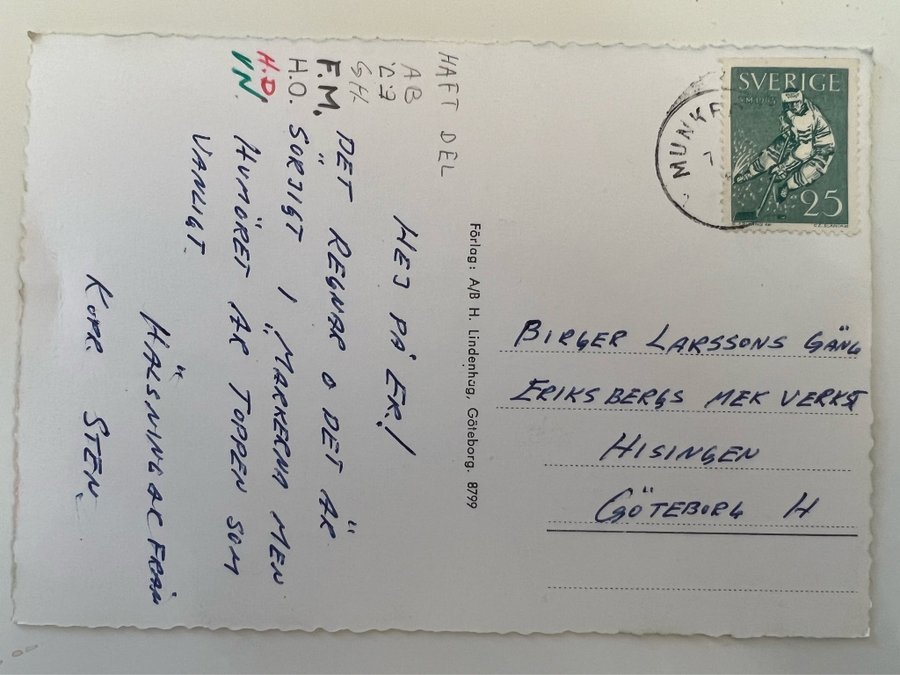 HAFT DEL
AB
GH.
F.M.
H.O.
H.D.
VN.
HEJ PÅ ER!
DET REGNAR O DET ÄR
SÖRJIGT I MARKERNA MEN
HUMÖRET ÄR TOPPEN SOM
VANLIGT.
HÄLSNINGAR FRÅN
KORR. STEN.
Förlag: A/B H. Lindenhag, Göteborg. 8799
MUNKF
7
SVERIGE
VM 1963
25
BIRGER LARSSONS GÄNG
ERIKSBERGS MEK VERKST
HISINGEN
GÖTEBORG H